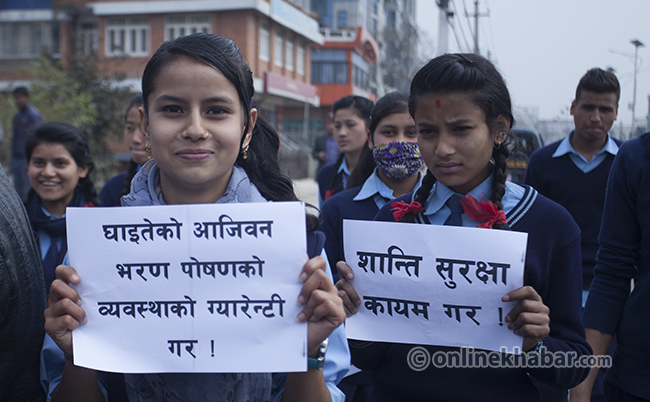 घाइतेको आजिवन
भरण पोषणको
व्यवस्थाको ग्यारेन्टी
गर !
शान्ति सुरक्षा
कायम गर !
©onlinekhabar.com